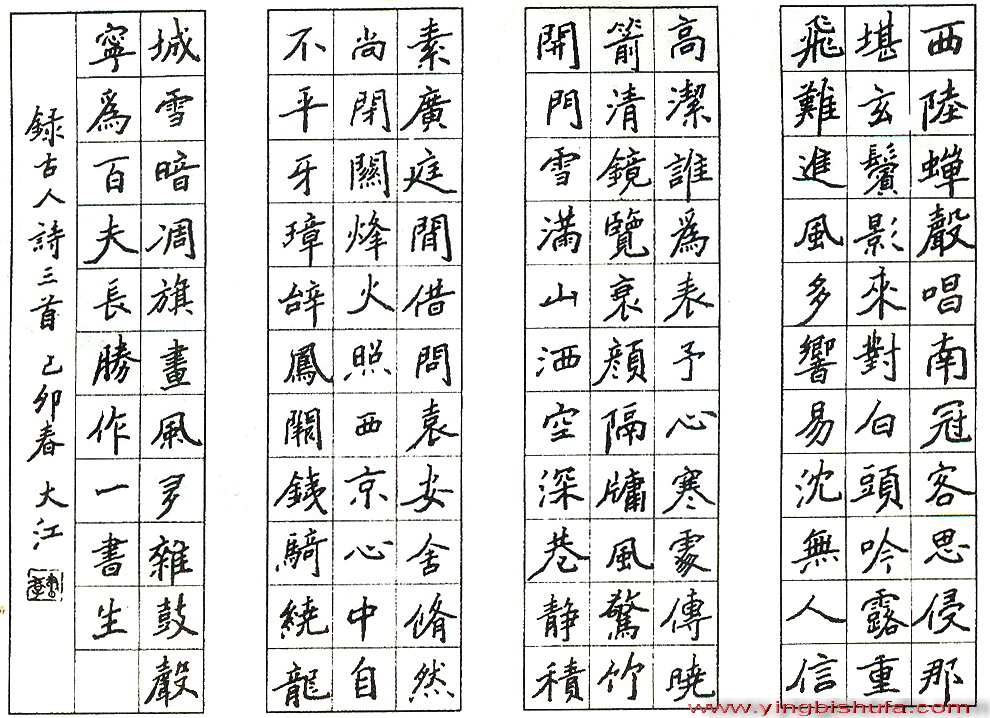 西陸蟬聲唱南冠客思侵那
堪玄鬢影來對白頭吟露重
飛難進風多響易沈無人信
高潔誰爲表予心寒傳曉
箭清鏡覽衰顏隔牖風驚竹
開門雪滿山洒空深巷静積
素廣庭閒借問袁安舍脩然
尚閉關烽火照西京心中自
不平牙璋辭鳳闕銕騎繞龍
城雪暗凋旗畫風多雜鼓聲
寧爲百夫長勝作一書生
録古人詩三首 己卯春 大江
www.yingbishufa.com